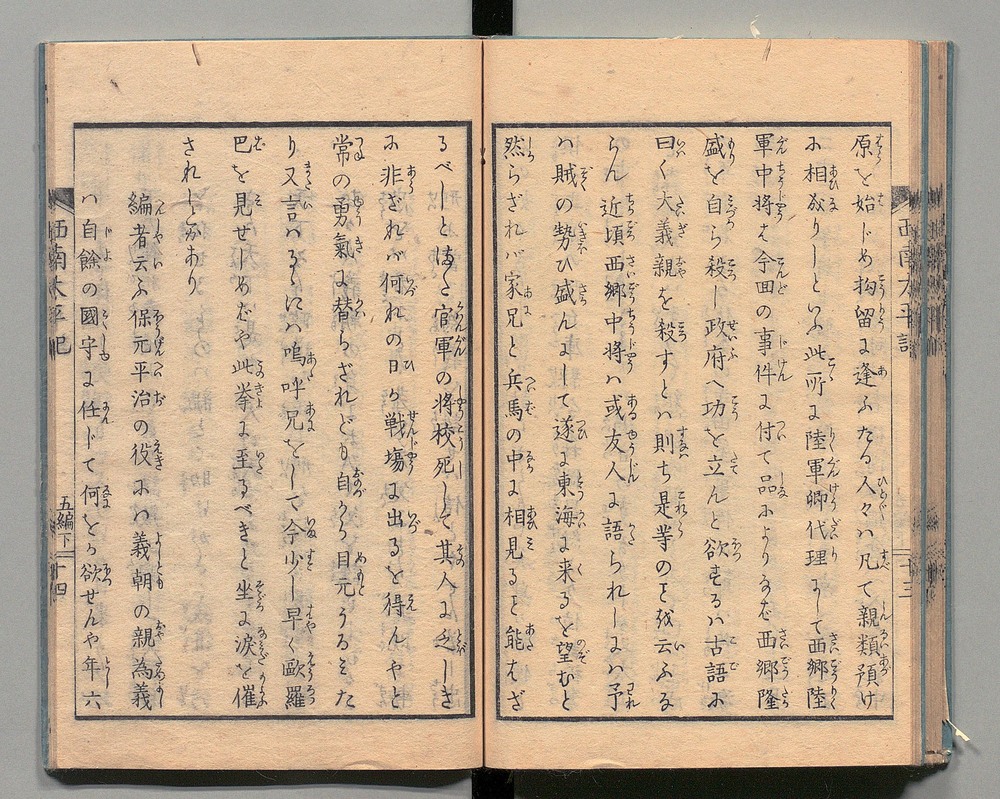 原を始じめ拘留に逢ふたる人々ハ凡て親類預け
に相成りしといふ此所に陸軍卿代理にして西郷陸
軍中将は今回の事件に付て品によりなば西郷隆
盛を自ら殺し政府へ功を立んと欲するハ古語に
曰く大義親を殺すとハ則ち是等のことを云ふな
らん近頃西郷中将ハ或友人に語られしにハ予
ハ賊の勢ひ盛んにして遂に東海に来るを望むと
然らざれバ家兄と兵馬の中に相見ること能はざ
るべしとはた官軍の将校死して其人に乏しき
に非ざれバ何れの日か戦場に出るを得んやと
常の勇氣に替らざれどか自から目元うるみた
り又言ハるゝにハ嗚呼兄をして今少し早く歐羅
巴を見せしめバや此挙に至るべきと坐に涙を催
されしとかあり
編者云ふ保元平治の役にハ義朝の親為義
ハ自餘の國守に任じて何をか欲せんや年六
西南太平記
十三
西南太平記
五編下
十四